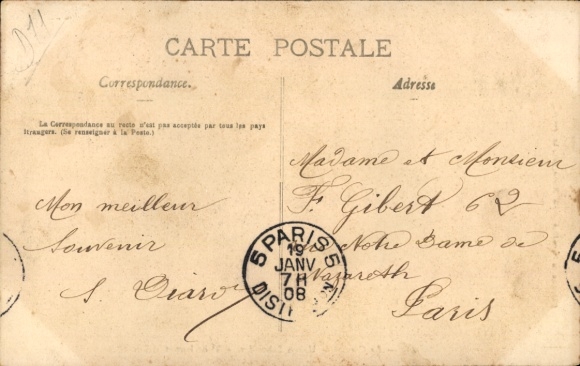 D11
CARTE POSTALE
Correspondance.
Adresse
La Correspondance au recto n'est pas acceptée par tous les pays
étrangers. (Se renseigner à la Poste.)
Mon meilleur
souvenir
Madame et Monsieur
F. Gibert 62
Notre Dame de
Nazareth
Paris
5 PARIS 5
19
JANV
7H
08